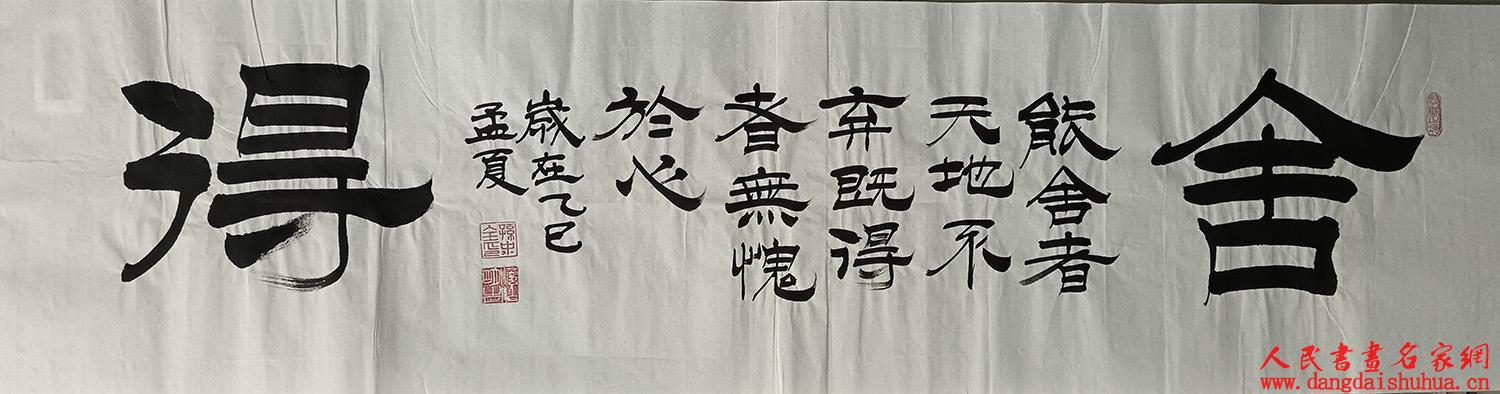 舍
能舍者
天地不
弃既得
者無愧
於心
歲在乙巳
孟夏
得
人民書畫名家網
www.dangdaishuhua.cn